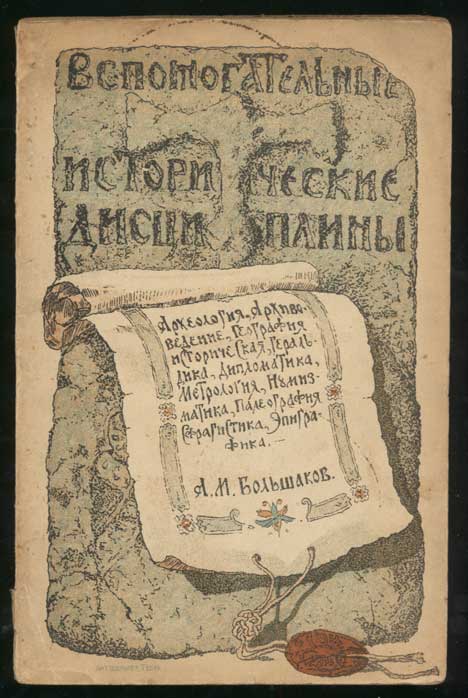 Вспомогательные
истори ческие
дисцип лины
Археология, Архиво-
ведение, География
историческая, Гераль-
дика, Дипломатика,
Метрология, Нумиз-
матика, Палеография
Сфрагистика, Эпигра-
фика.—
А. М. Большаков.